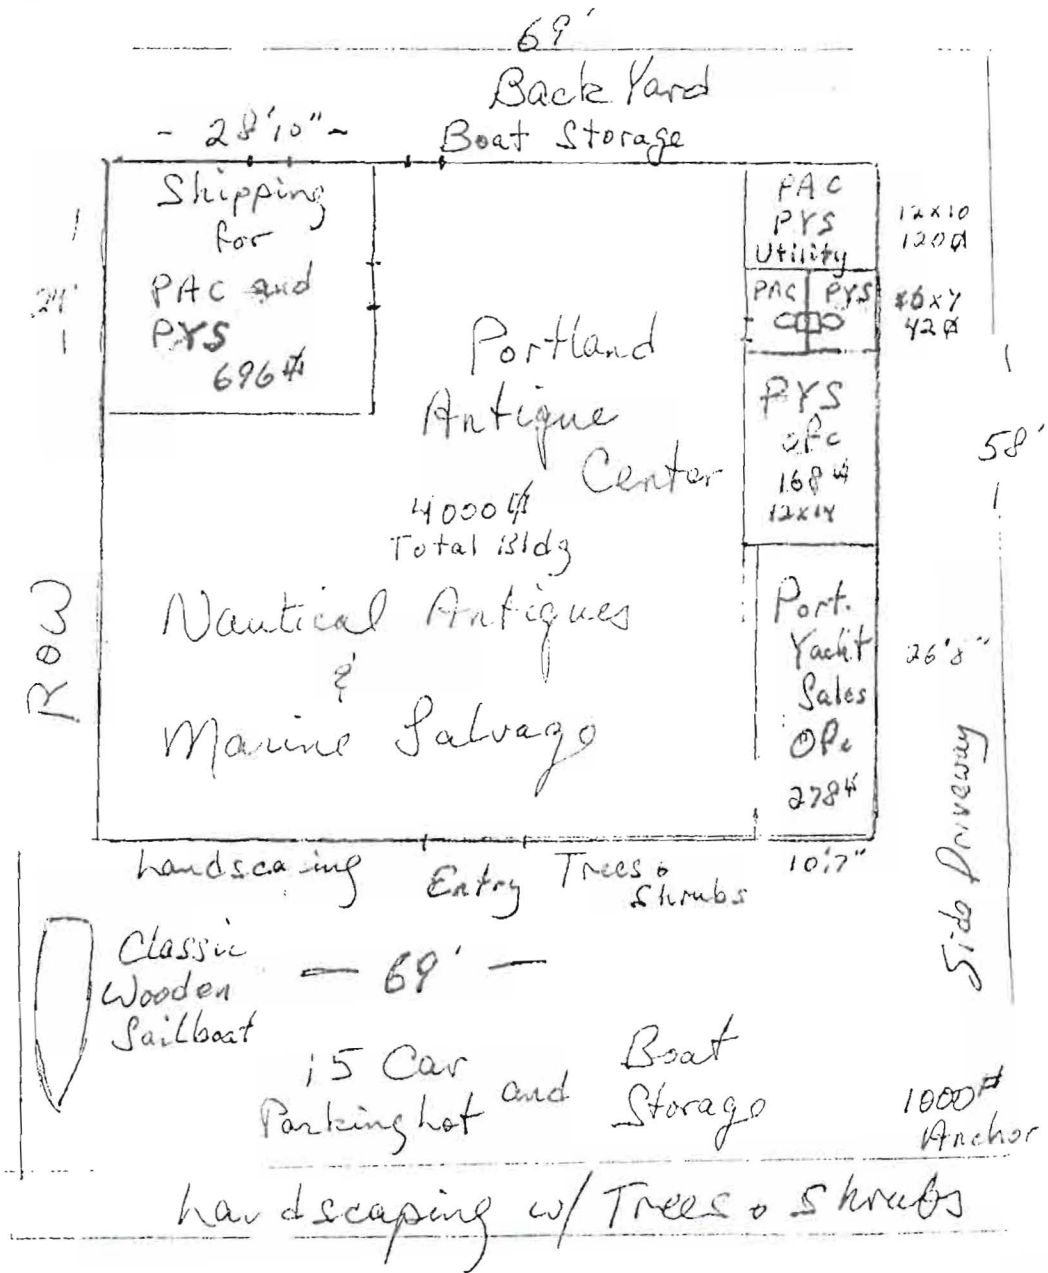 69'
Back Yard
Boat Storage
- 28'10" -
Shipping
for
PAC and
PYS
696 ⌗
24'
PAC
PYS
Utility
12x10
120⌗
PAC PYS
6x7
42⌗
Portland
Antique
Center
4000 ⌗
Total Bldg
PYS
ofc
168 ⌗
12x14
58'
Nautical Antiques
&
Marine Salvage
Port.
Yacht
Sales
Ofc
278⌗
26'8"
ROW
Side Driveway
Landscaping
Entry
Trees &
Shrubs
10'7"
Classic
Wooden
Sailboat
- 69' -
15 Car
Parking Lot
and
Boat
Storage
1000#
Anchor
Landscaping w/ Trees & Shrubs